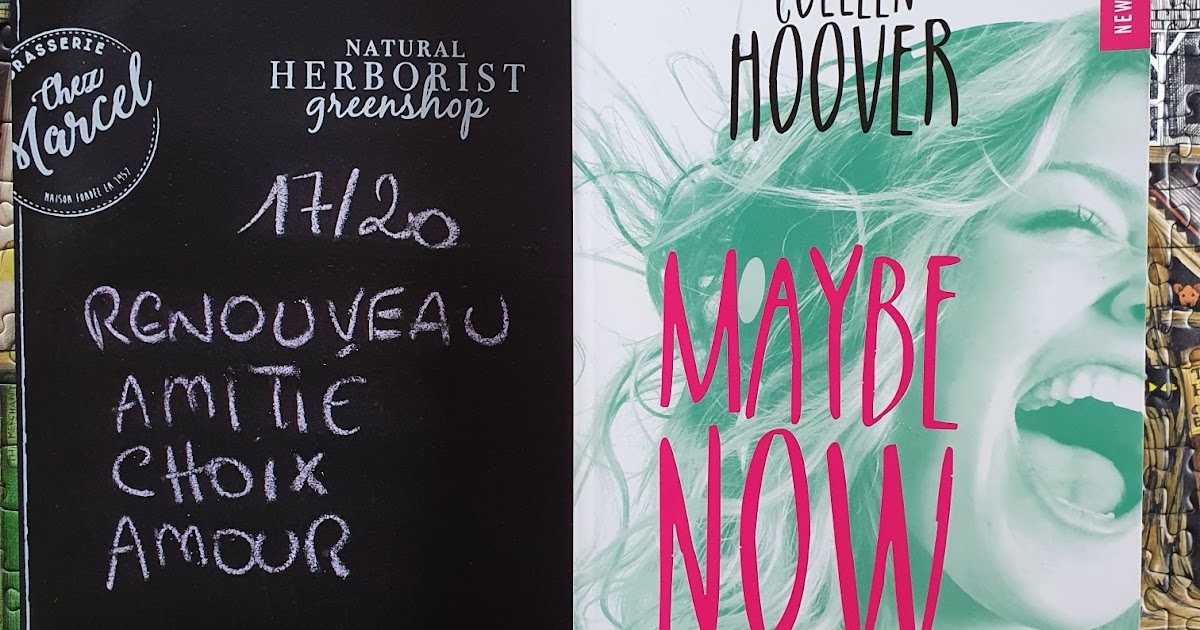 BRASSERIE
Chez
Marcel
MAISON FONDÉE EN 1957
NATURAL
HERBORIST
greenshop
17/20
RENOUVEAU
AMITIÉ
CHOIX
AMOUR
COLLEEN
HOOVER
NEW
MAYBE
NOW